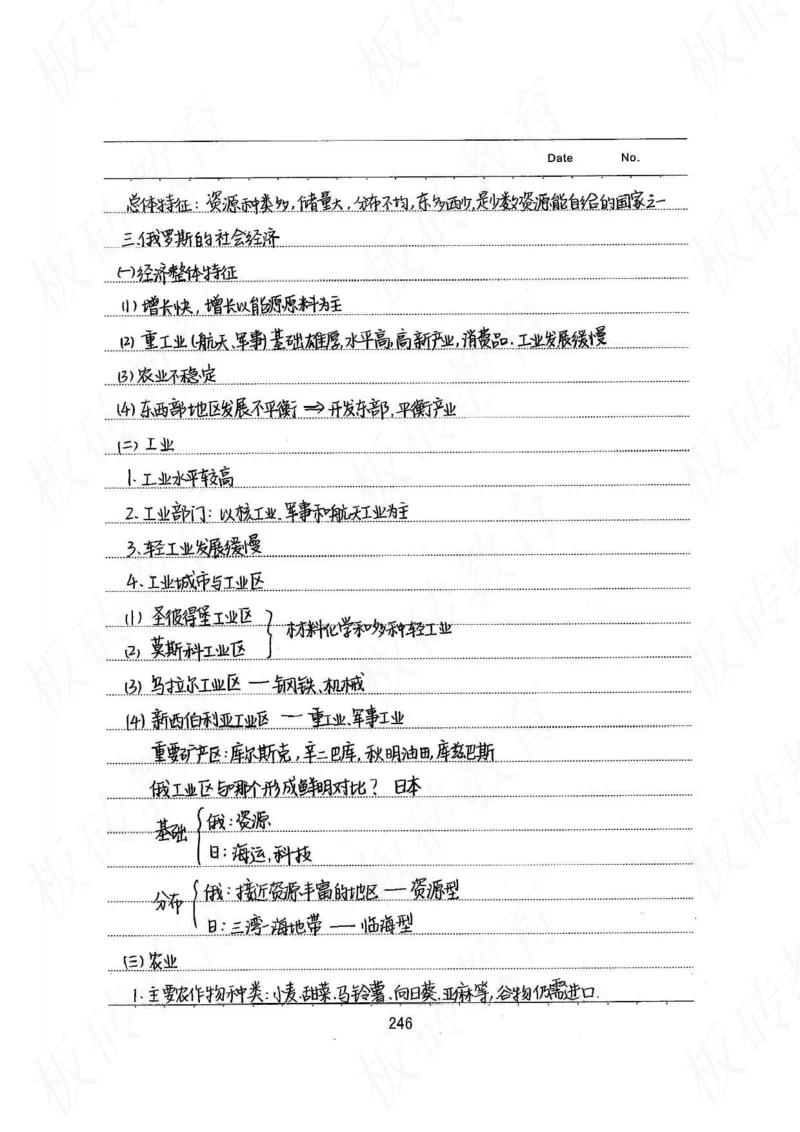 Date No.
总体特征：资源种类多，储量大，分布不均，东多西少，是少数资源能自给的国家之一
三.俄罗斯的社会经济
(一)经济整体特征
(1) 增长快，增长以能源原料为主
(2) 重工业(航天、军事)基础雄厚，水平高，高新产业，消费品.工业发展缓慢
(3) 农业不稳定
(4) 东西部地区发展不平衡 ⇒ 开发东部，平衡产业
(二) 工业
1. 工业水平较高
2. 工业部门：以核工业、军事和航天工业为主
3. 轻工业发展缓慢
4. 工业城市与工业区
(1) 圣彼得堡工业区
材料化学和多种轻工业
(2) 莫斯科工业区
(3) 乌拉尔工业区 — 钢铁、机械
(4) 新西伯利亚工业区 — 重工业、军事工业
重要矿产区：库尔斯克，辛二巴库，秋明油田，库兹巴斯
俄工业区与哪个形成鲜明对比？ 日本
基础
俄：资源
日：海运，科技
分布
俄：接近资源丰富的地区 — 资源型
日：三湾一海地带 — 临海型
(三) 农业
1. 主要农作物种类：小麦、甜菜、马铃薯、向日葵、亚麻等，谷物仍需进口.
246
板砖教育